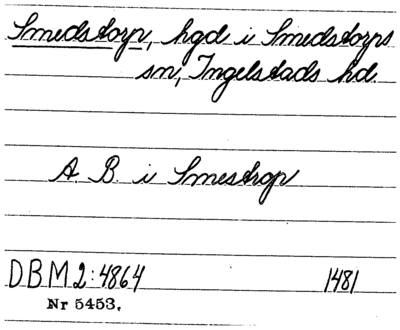 Smedstorp, hgd i Smedstorps
sn, Ingelstads hd.
A. B. i Smestrop
DBM 2:4864 1481
Nr 5453.